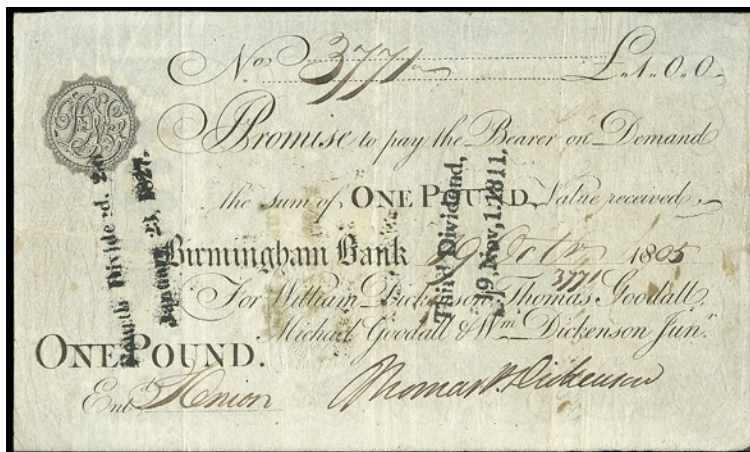 No. 3771 £1.0.0
I Promise to pay the Bearer on Demand
the sum of ONE POUND Value received
Birmingham Bank 19 Octr 1805
3771
For William Dickenson, Thomas Goodall,
Michael Goodall & Wm. Dickenson Junr.
ONE POUND.
Entd
Thomas Dickenson
Fourth Dividend.
January 23, 1827.
Third Dividend,
Nov, 1, 1811,